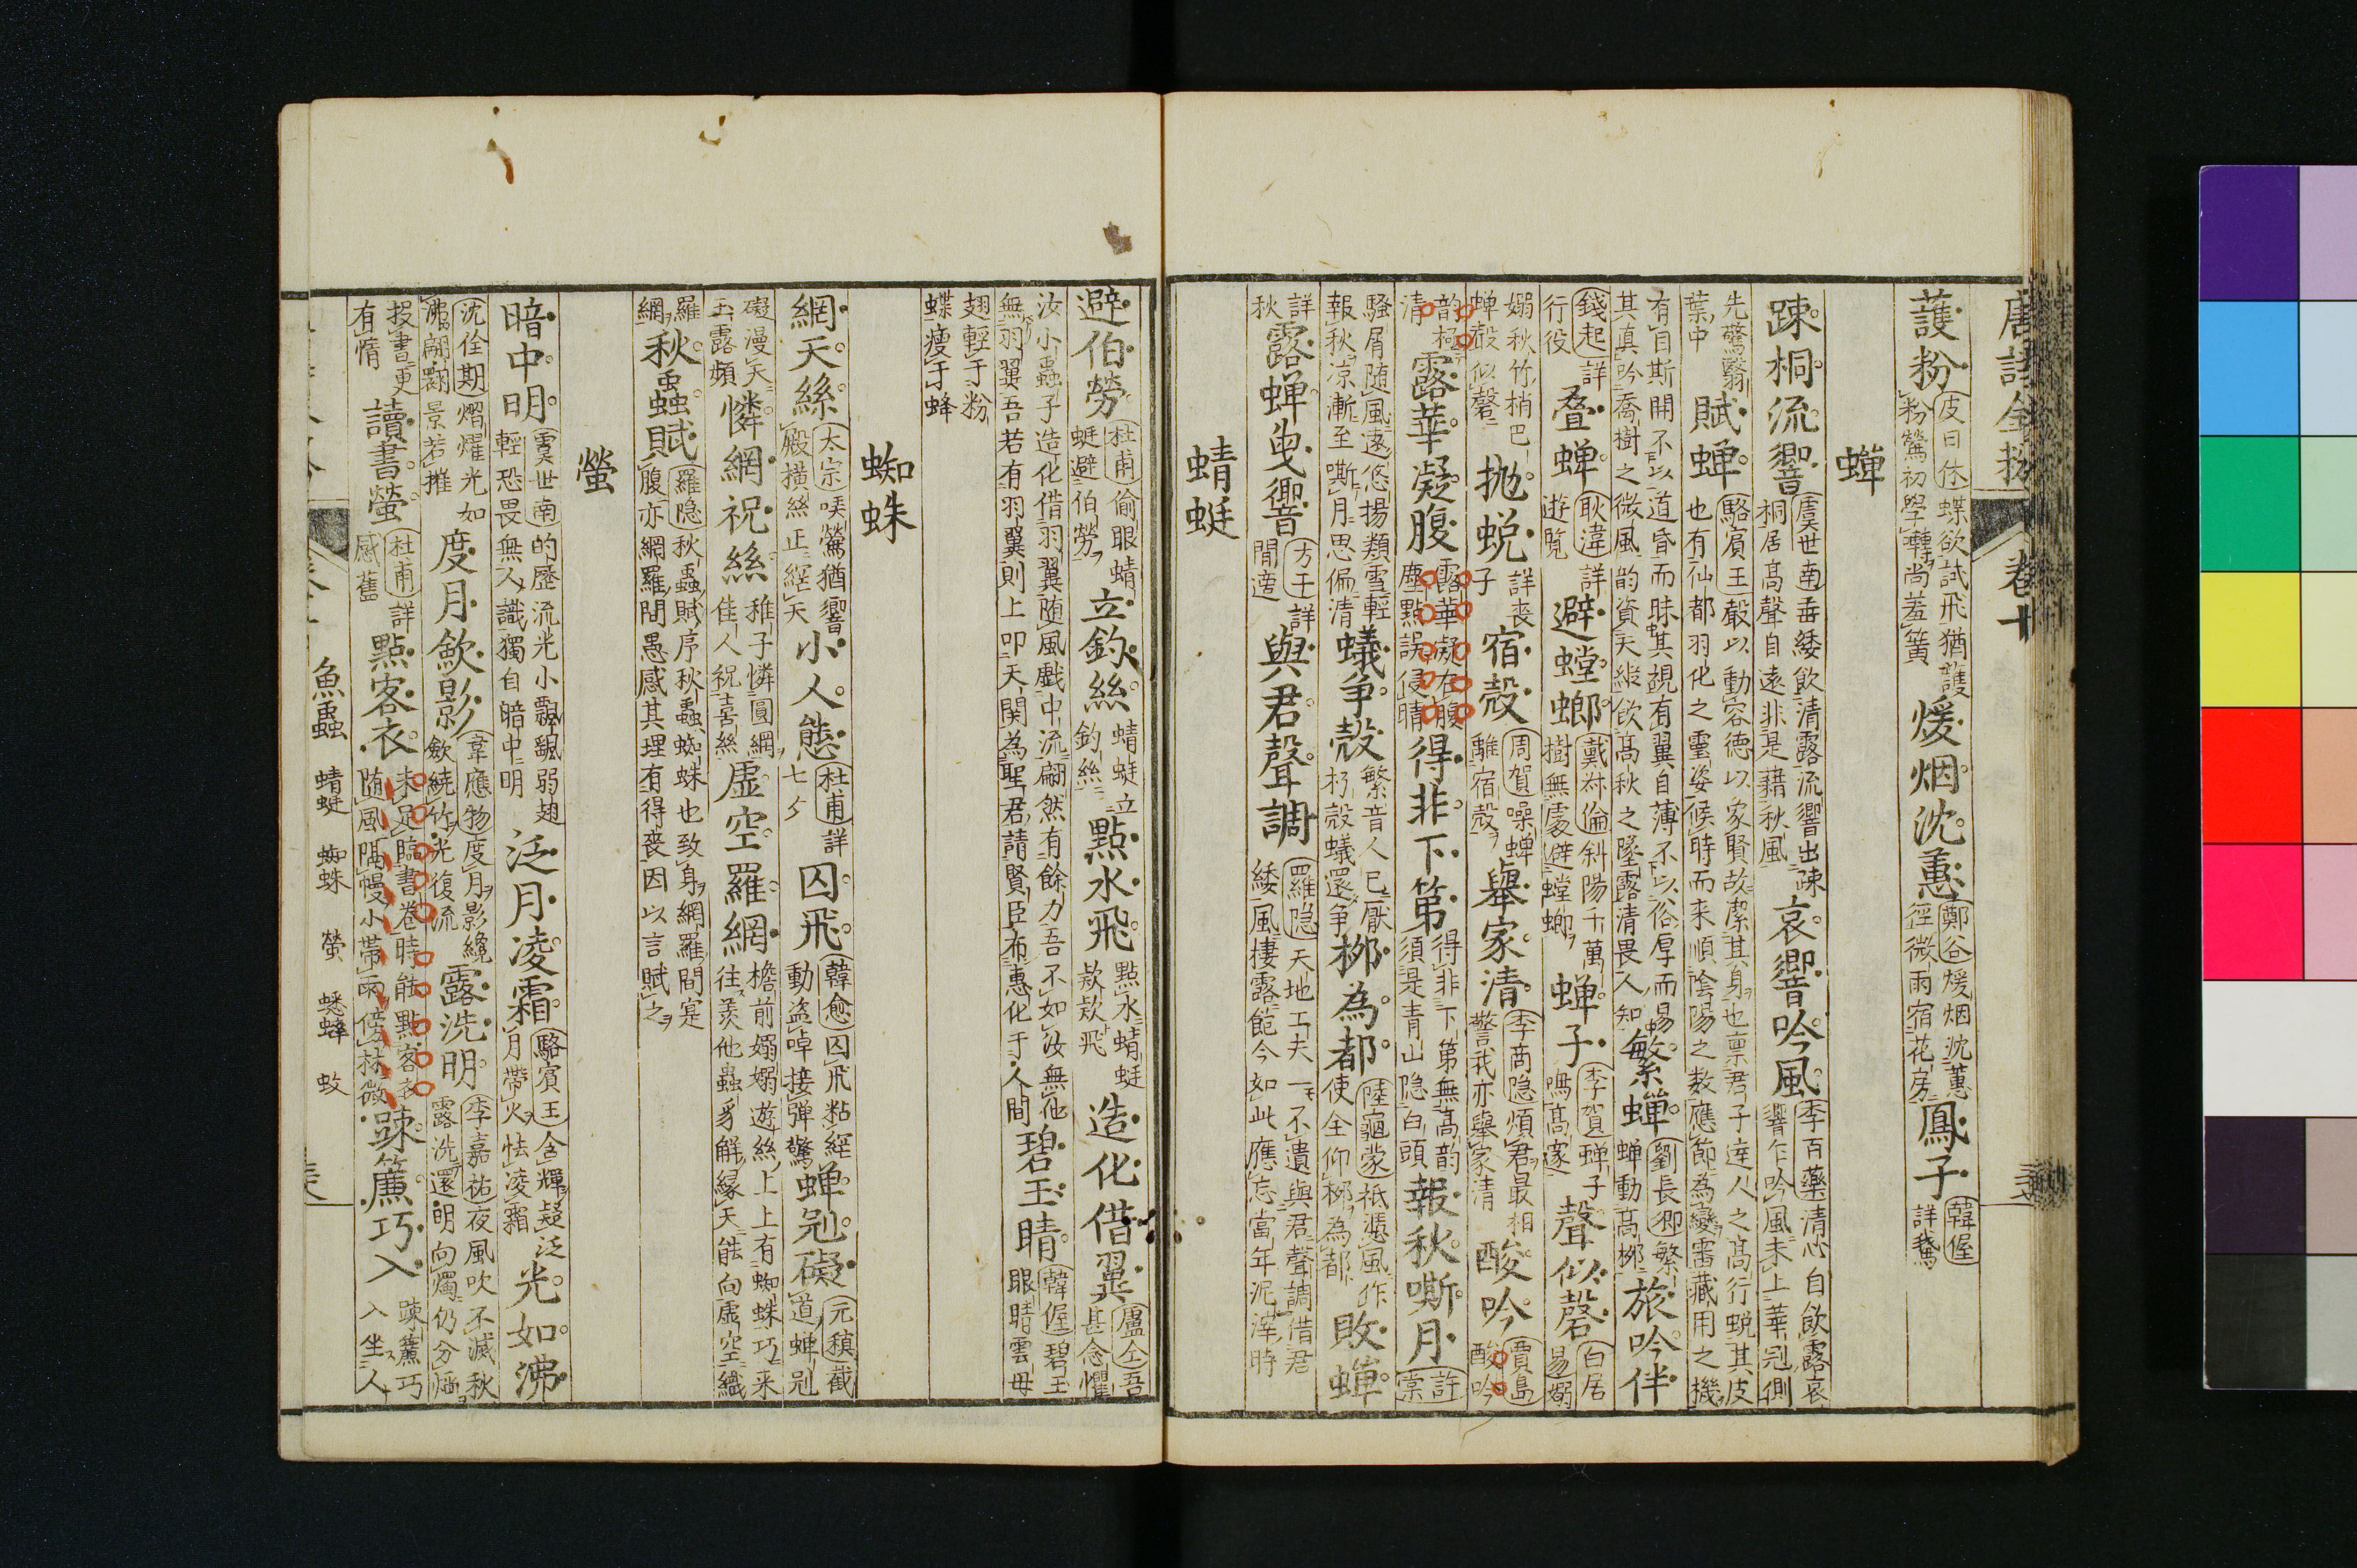 唐詩金粉 卷十
護粉 皮日休 蝶欲試飛猶護粉鶯初學囀尚羞簧 煖烟沈蕙 鄭谷 煖烟沈蕙徑微雨宿花房 鳳子 韓偓 詳鵞
蟬
踈桐流響 虞世南 垂緌飲清露流響出踈桐居高聲自遠非是藉秋風 哀響吟風 李百藥 清心自飲露哀響乍吟風未上華冠側
先驚翳葉中 賦蟬 駱賓王 聲以動容德以象賢故潔其身也稟君子達人之高行蛻其皮也有仙都羽化之靈姿候時而来順陰陽之数應節為變審藏用之機
有目斯開不以道昏而昧其覩有翼自薄不以俗厚而易其真吟喬樹之微風韵資天縱飲高秋之墜露清畏人知 繁蟬 劉長卿 繁蟬動高栁 旅吟伴
錢起 詳行役 叠蟬 耿湋 詳遊覧 避螳螂 戴叔倫 斜陽千萬樹無處避螳螂 蟬子 李賀 蟬子嗚高邃 聲似磬 白居易 嫋
嫋秋竹梢巴蟬聲似磬 拋蛻 詳丧子 宿殻 周賀 噪蟬離宿殻 舉家清 李商隐 煩君最相警我亦舉家清 酸吟 賈島 酸吟
韵極清 露華凝腹 露華凝在腹塵點誤侵睛 得非下第 得非下第無高韵須是青山隐白頭 報秋嘶月 許棠
騷屑随風遠悠揚類雪輕報秋凉漸至嘶月思偏清 蟻争殻 繁音人已厭朽殻蟻還争 栁為都 陸龜蒙 祗憑風作使全仰栁為都 敗蟬
詳秋 露蟬曳響 方干 詳閒適 與君聲調 羅隐 天地工夫一不遺與君聲調借君緌風棲露飽今如此應忘當年泥滓時
蜻蜓
避伯勞 杜甫 偷眼蜻蜓避伯勞 立釣絲 蜻蜓立釣絲 點水飛 點水蜻蜓款款飛 造化借翼 盧仝 吾甚念懼
汝小蟲子造化借羽翼随風戲中流翩然有餘力吾不如汝無他無羽翼吾若有羽翼則上叩天関為聖君請賢臣布惠化于人間 碧玉晴 韓偓 碧玉眼睛雲母
翅輕于粉蝶瘦于蜂
蜘蛛
網天絲 太宗 笑鶯猶響殿横絲正綰天 小人態 杜甫 詳七夕 囚飛 韓愈 囚飛粘經動盗啅接弾驚 蟬冠礙 元稹 截道蟬冠
礙漫天玉露頻 憐網祝絲 稚子憐圓網佳人祝喜絲 虚空羅網 檐前嫋嫋遊絲上上有蜘蛛巧来往羨他蟲豸解縁天能向虚空織
羅網 秋蟲賦 羅隐 秋蟲賦序秋蟲蜘蛛也致身網羅間寔腹亦網羅間愚感其理有得丧因以言賦之
螢
暗中明 虞世南 的歷流光小飄飖弱翅輕恐畏無人識獨自暗中明 泛月凌霜 駱賓王 含輝疑泛月帶火怯凌霜 光如沸
沈佺期 熠燿光如沸翩翾景若摧 度月歛影 韋應物 度月影纔歛繞竹光復流 露洗明 李嘉祐 夜風吹不滅秋露洗還明向燭仍分
投書更有惰 讀書螢 杜甫 詳感舊 點客衣 未足臨書巻時能點客衣随風隔幔小帶雨傍林微 踈簾巧入 踈簾巧入坐人
魚蟲 蜻蜓 蜘蛛 螢 蟋蟀 蚊